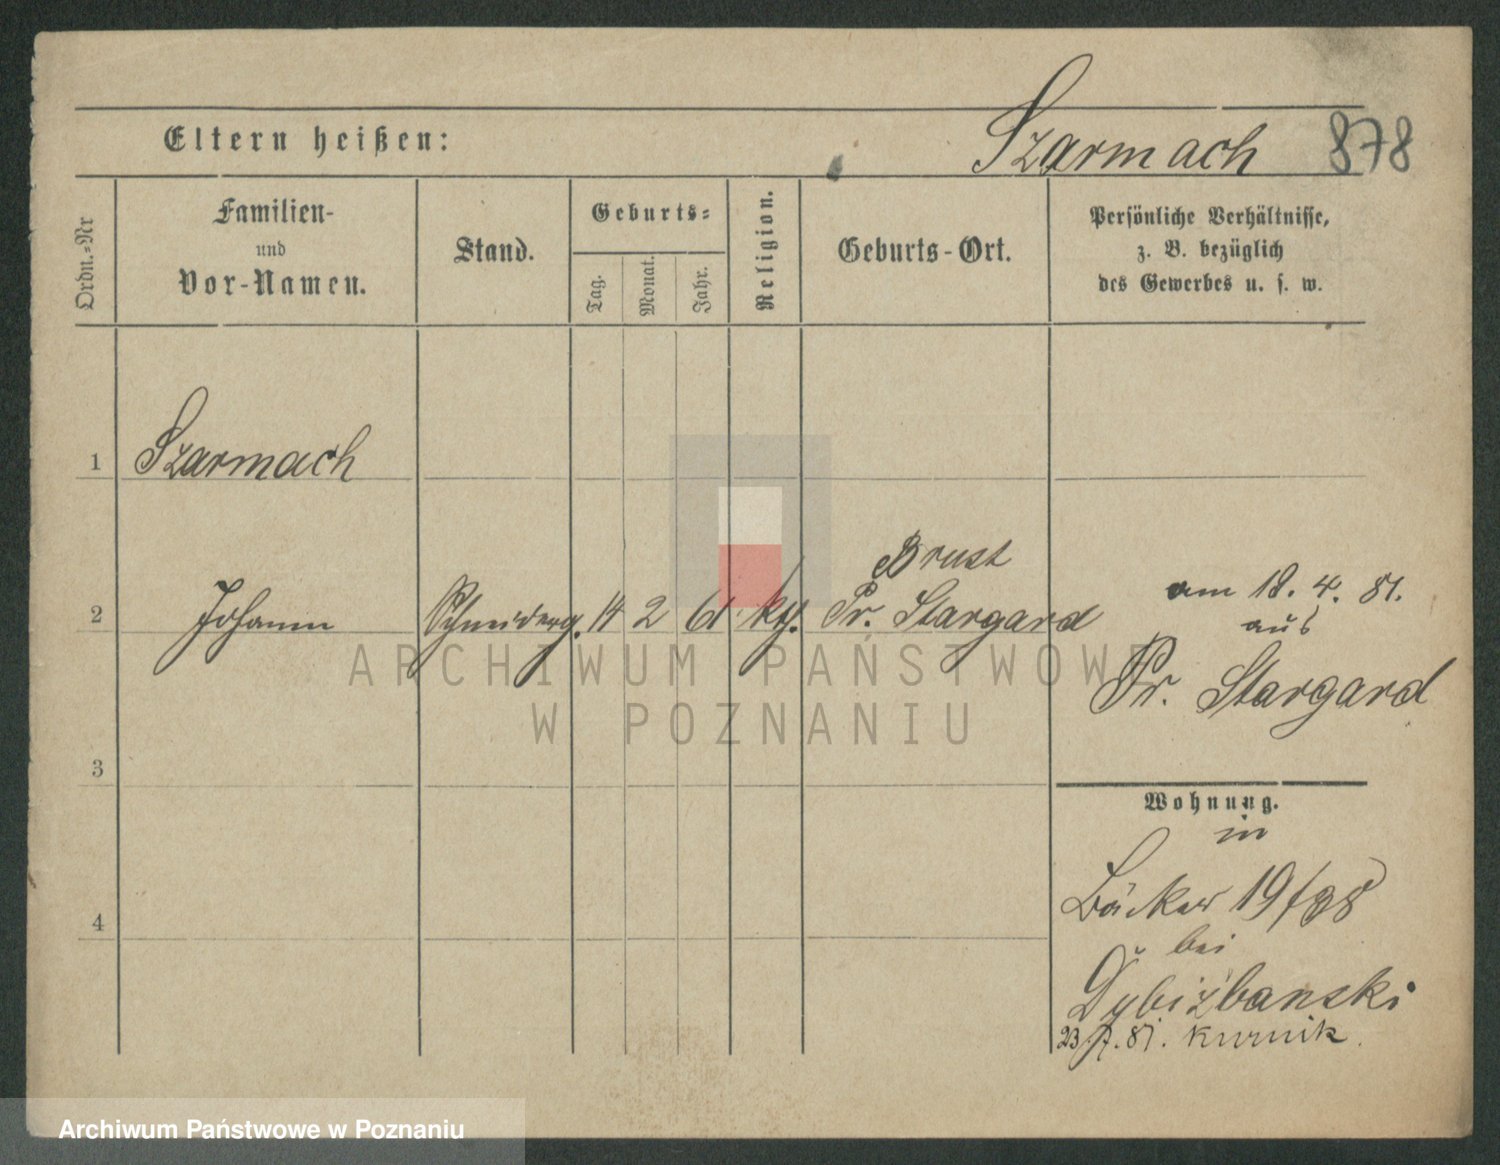 Szarmach 878
Eltern heißen:
Ordn.-Nr
Familien-
und
Vor-Namen.
Stand.
Geburts-
Tag.
Monat.
Jahr.
Religion.
Geburts-Ort.
Persönliche Verhältnisse,
z. B. bezüglich
des Gewerbes u. s. w.
1 Szarmach
Brust
2 Johann Schneiderg. 14 2 61 kth. Pr. Stargard
am 18. 4. 81.
aus
Pr. Stargard
ARCHIWUM PAŃSTWOWE
W POZNANIU
3
Wohnung.
in
Bäcker 19/
4
bei
Dybizbanski
23. 7. 81. Kurnik
Archiwum Państwowe w Poznaniu